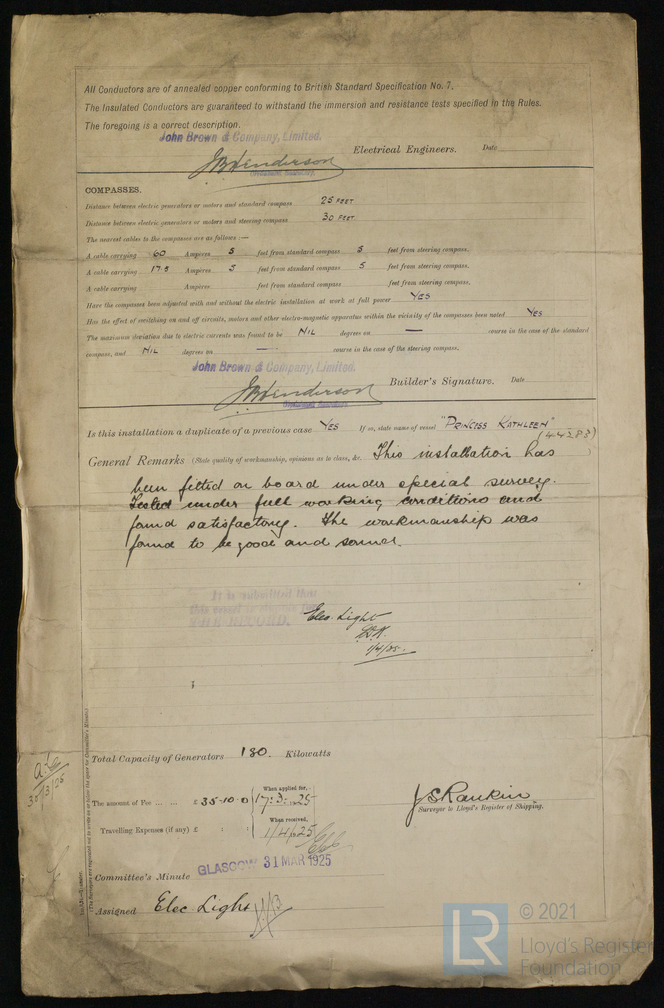 All Conductors are of annealed copper conforming to British Standard Specification No. 7.
The Insulated Conductors are guaranteed to withstand the immersion and resistance tests specified in the Rules.
The foregoing is a correct description.
John Brown & Company, Limited.
JBHenderson Electrical Engineers. Date
COMPASSES.
Distance between electric generators or motors and standard compass 25 FEET
Distance between electric generators or motors and steering compass 30 FEET
The nearest cables to the compasses are as follows :—
A cable carrying 60 Amperes 5 feet from standard compass 5 feet from steering compass.
A cable carrying 17.5 Amperes 5 feet from standard compass 5 feet from steering compass.
A cable carrying Amperes feet from standard compass feet from steering compass.
Have the compasses been adjusted with and without the electric installation at work at full power YES
Has the effect of switching on and off circuits, motors and other electro-magnetic apparatus within the vicinity of the compasses been noted YES
The maximum deviation due to electric currents was found to be NIL degrees on — course in the case of the standard
compass, and NIL degrees on — course in the case of the steering compass.
John Brown & Company, Limited.
JBHenderson Builder's Signature. Date
Is this installation a duplicate of a previous case YES If so, state name of vessel "PRINCESS KATHLEEN"
(44283)
General Remarks (State quality of workmanship, opinions as to class, &c. This installation has
been fitted on board under special survey.
Tested under full working conditions and
found satisfactory. The workmanship was
found to be good and sound.
It is submitted that
this vessel is eligible for
THE RECORD.
Elec. Light
1/4/25.
Total Capacity of Generators 130. Kilowatts
30/3/25
The amount of Fee ... ... £ 35-10-0 When applied for, 17.3.1925
When received,
Travelling Expenses (if any) £ : : 1/4/1925
JSRankin
Surveyor to Lloyd's Register of Shipping.
Committee's Minute GLASGOW 31 MAR 1925
Assigned Elec. Light
LR © 2021
Lloyd's Register
Foundation